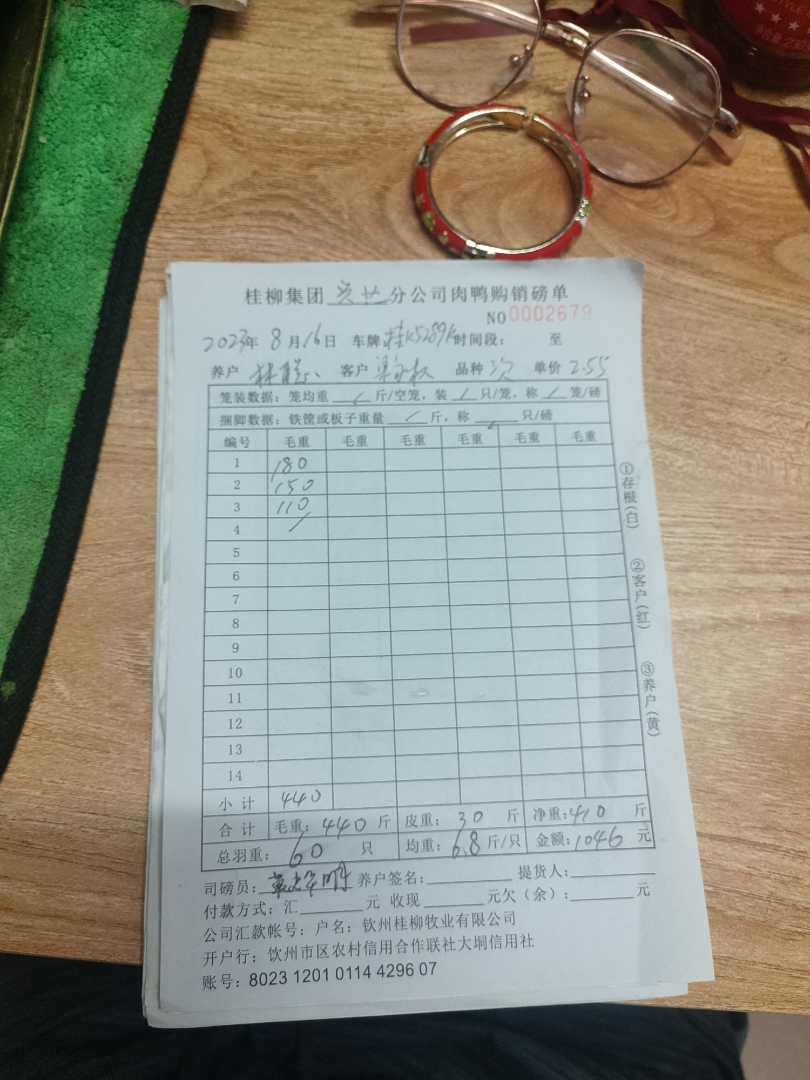 桂柳集团 分公司肉鸭购销磅单
NO 0002679
2023年 8月16日 车牌 桂K5289K 时间段: 至
养户 林 客户 品种 次 单价 2.55
笼装数据: 笼均重 / 斤/空笼, 装 / 只/笼, 称 / 笼/磅
捆脚数据: 铁篦或板子重量 / 斤, 称 只/磅
编号 毛重 毛重 毛重 毛重 毛重 毛重
1 180
2 150
3 110
4 /
5
6
7
8
9
10
11
12
13
14
小计 440
合计 毛重: 440 斤 皮重: 30 斤 净重: 410 斤
总羽重: 60 只 均重: 6.8 斤/只 金额: 1046 元
司磅员: 养户签名: 提货人:
付款方式: 汇 元 收现 元欠(余): 元
公司汇款帐号: 户名: 钦州桂柳牧业有限公司
开户行: 钦州市区农村信用合作联社大垌信用社
账号: 8023 1201 0114 4296 07
①存根(白)
②客户(红)
③养户(黄)
净含量